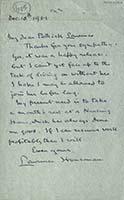 Dec. 10th 1931
My dear Pethick Lawrence
Thanks for your sympathy.
Yes, it was a happy release:
but I can't yet face up to the
task of living on without her
& hope I may be allowed to
join her before long.
My present need is to take
a month's rest at a Nursing
Home, which has always done
me good. If I can resume work
profitably, then I will
Ever yours,
Laurence Housman